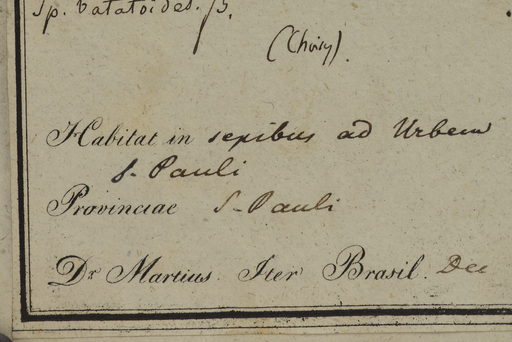 Ip. batatoides. β.
(Choisy).
Habitat in sepibus ad Urbem
S. Pauli
Provinciae S. Pauli
Dr Martius. Iter Brasil. Dec